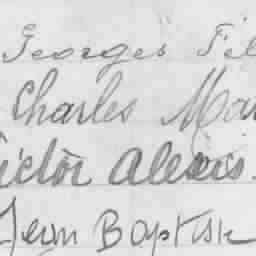 Georges Fél
Charles Ma
ictor Alexis
Jean Baptiste